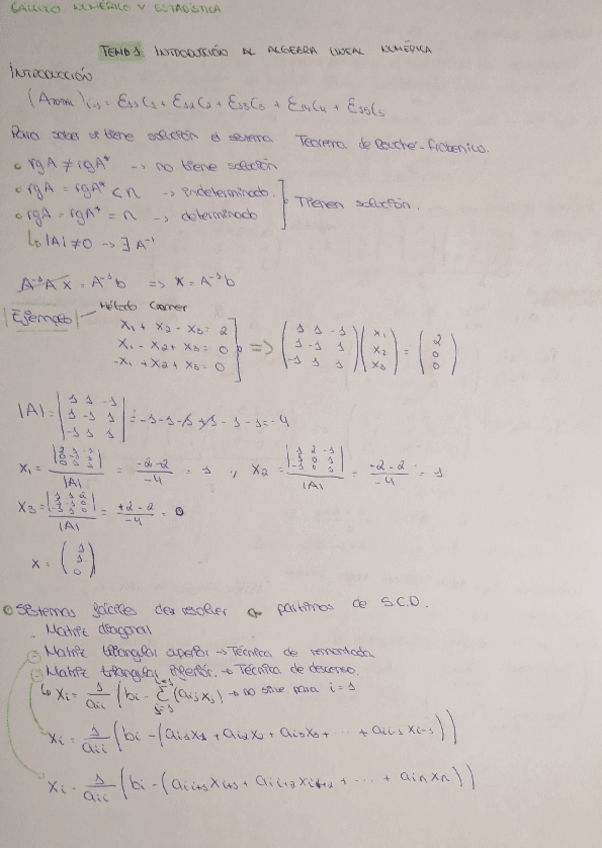 CÁLCULO NUMÉRICO Y ESTADÍSTICA
TEMA 1: INTRODUCCIÓN AL ALGEBRA LINEAL NUMÉRICA
INTRODUCCIÓN
Para saber si tiene solución el sistema Teorema de Rouché-Frobenius.
• rgA ≠ rgA* → no tiene solución
• rgA = rgA* < n → indeterminado.
• rgA = rgA* = n → determinado
Tienen solución.
↳ |A| ≠ 0 → ∃ A⁻¹
A⁻¹A x = A⁻¹b => x = A⁻¹b
Ejemplo — Método Cramer
x₁ + x₂ - x₃ = 2
x₁ - x₂ + x₃ = 0
-x₁ + x₂ + x₃ = 0
=> (1 1 -1; 1 -1 1; -1 1 1) (x₁; x₂; x₃) = (2; 0; 0)
|A| = |1 1 -1; 1 -1 1; -1 1 1| = -1-1-1+1-1-1 = -4
x₁ = / |A| = -2-2 / -4 = 1 , x₂ = |1 2 -1; 1 0 1; -1 0 1| / |A| = -2-2 / -4 = 1
x₃ = / |A| = +2-2 / -4 = 0
x = (1; 1; 0)
• Sistemas fáciles de resolver partimos de S.C.D.
- Matriz diagonal
- Matriz triangular superior → Técnica de remontada
- Matriz triangular inferior. → Técnica de descenso.
↳ xᵢ = 1/aᵢᵢ (bᵢ - Σ (aᵢⱼ xⱼ) → no sirve para i = 1
xᵢ = 1/aᵢᵢ (bᵢ - (aᵢ₁x₁ + aᵢ₂x₂ + aᵢ₃x₃ + ... + aᵢᵢ₋₁ xᵢ₋₁))
xᵢ = 1/aᵢᵢ (bᵢ - (aᵢᵢ₊₁xᵢ₊₁ + aᵢᵢ₊₂xᵢ₊₂ + ... + aᵢₙxₙ))